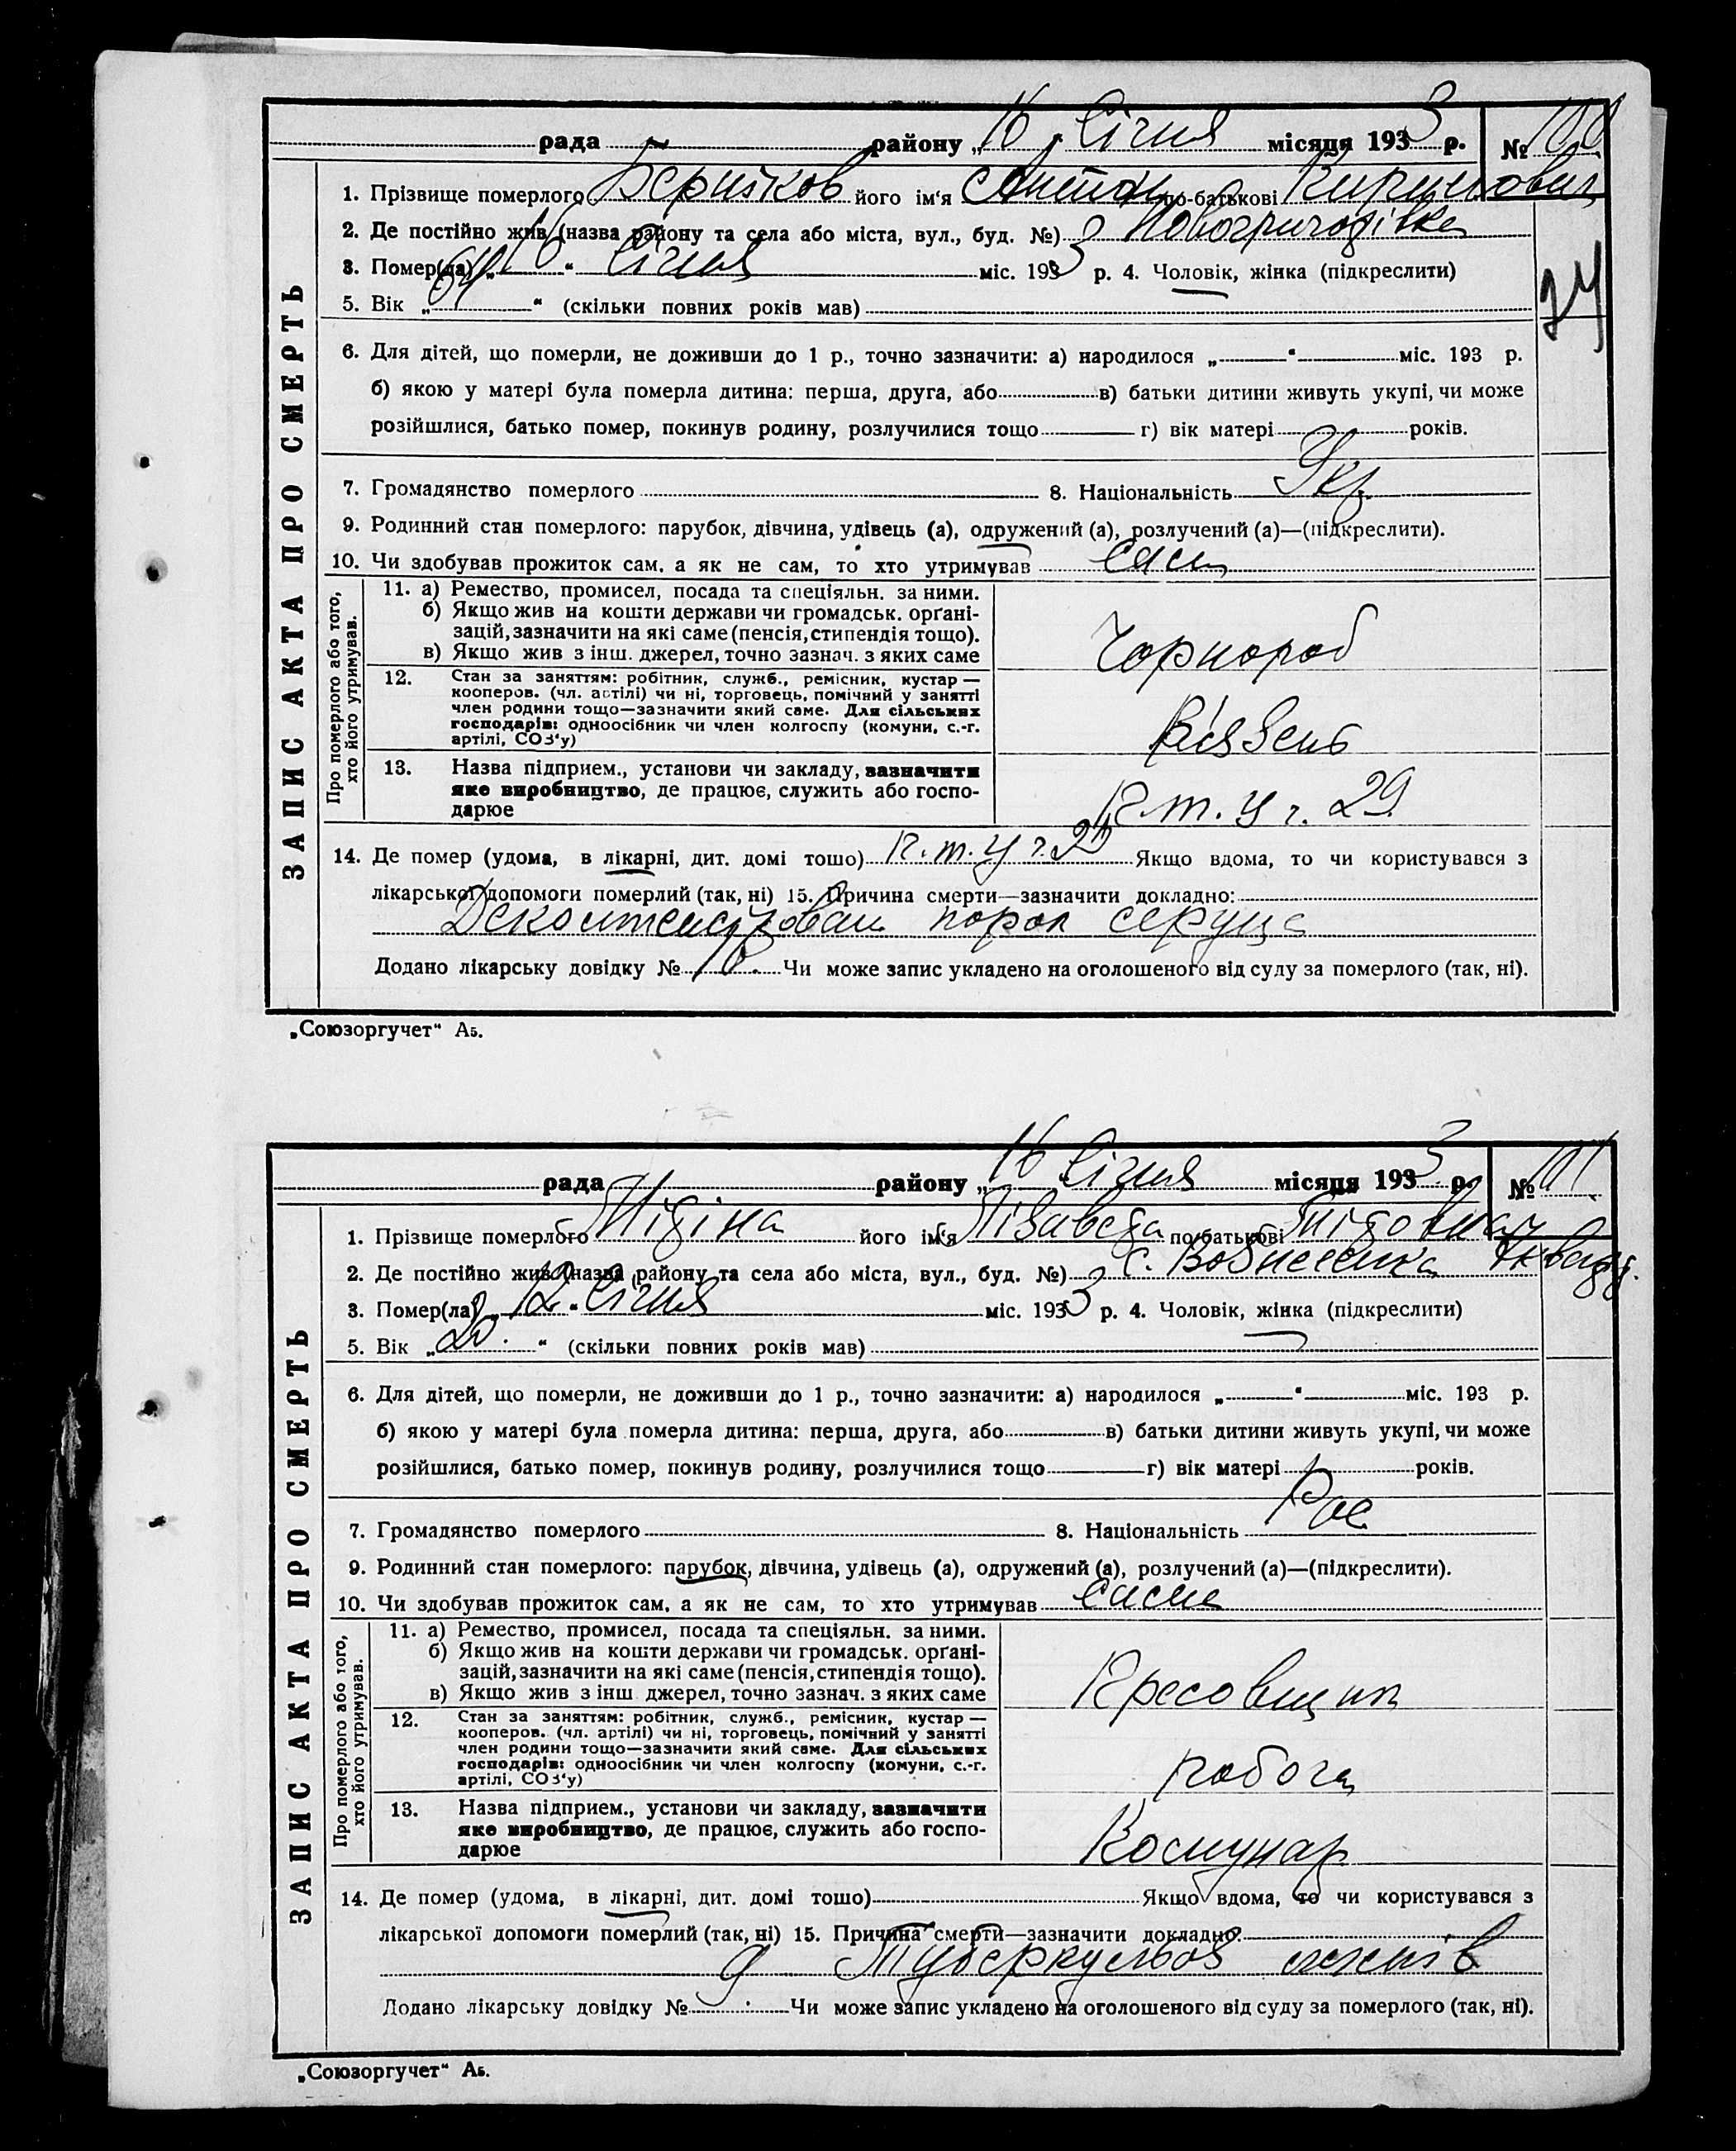 рада району „16“ Січня місяця 1933 р. № 100
1. Прізвище померлого його ім'я Антон по-батькові Кирилович
2. Де постійно жив (назва району та села або міста, вул., буд. №) Новогригорівка
3. Помер(ла) „16“ Січня міс. 1933 р. 4. Чоловік, жінка (підкреслити)
5. Вік „64“ (скільки повних років мав)
24
6. Для дітей, що померли, не доживши до 1 р., точно зазначити: а) народилося „ “ міс. 193 р.
б) якою у матері була померла дитина: перша, друга, або в) батьки дитини живуть укупі, чи може
розійшлися, батько помер, покинув родину, розлучилися тощо г) вік матері років.
7. Громадянство померлого 8. Національність Укр.
9. Родинний стан померлого: парубок, дівчина, удівець (а), одружений (а), розлучений (а)—(підкреслити).
10. Чи здобував прожиток сам, а як не сам, то хто утримував сам
ЗАПИС АКТА ПРО СМЕРТЬ
Про померлого або того, хто його утримував.
11. а) Ремество, промисел, посада та спеціяльн. за ними.
б) Якщо жив на кошти держави чи громадськ. орґані-
зацій, зазначити на які саме (пенсія, стипендія тощо).
в) Якщо жив з інш. джерел, точно зазнач. з яких саме
Чорнороб
12. Стан за заняттям: робітник, служб., ремісник, кустар —
кооперов. (чл. артілі) чи ні, торговець, помічний у занятті
член родини тощо—зазначити який саме. Для сільських
господарів: одноосібник чи член колгоспу (комуни, с.-г.
артілі, СОЗ'у)
13. Назва підприєм., установи чи закладу, зазначити
яке виробництво, де працює, служить або госпо-
дарює
К.т.У г. 29
14. Де помер (удома, в лікарні, дит. домі тошо) К.т.У г. 29 Якщо вдома, то чи користувався з
лікарської допомоги померлий (так, ні) 15. Причина смерти—зазначити докладно:
порок серуца
Додано лікарську довідку № Чи може запис укладено на оголошеного від суду за померлого (так, ні).
„Союзоргучет“ А5.
рада району „16“ Січня місяця 1933 р. № 101
1. Прізвище померлого його ім'я Лізавета по-батькові Тітовна
2. Де постійно жив (назва району та села або міста, вул., буд. №) с. Вознесенка
3. Помер(ла) „12“ Січня міс. 1933 р. 4. Чоловік, жінка (підкреслити)
5. Вік „20.“ (скільки повних років мав)
6. Для дітей, що померли, не доживши до 1 р., точно зазначити: а) народилося „ “ міс. 193 р.
б) якою у матері була померла дитина: перша, друга, або в) батьки дитини живуть укупі, чи може
розійшлися, батько помер, покинув родину, розлучилися тощо г) вік матері років.
7. Громадянство померлого 8. Національність Рос
9. Родинний стан померлого: парубок, дівчина, удівець (а), одружений (а), розлучений (а)—(підкреслити).
10. Чи здобував прожиток сам, а як не сам, то хто утримував сама
ЗАПИС АКТА ПРО СМЕРТЬ
Про померлого або того, хто його утримував.
11. а) Ремество, промисел, посада та спеціяльн. за ними.
б) Якщо жив на кошти держави чи громадськ. орґані-
зацій, зазначити на які саме (пенсія, стипендія тощо).
в) Якщо жив з інш. джерел, точно зазнач. з яких саме
Пресовщик
12. Стан за заняттям: робітник, служб., ремісник, кустар —
кооперов. (чл. артілі) чи ні, торговець, помічний у занятті
член родини тощо—зазначити який саме. Для сільських
господарів: одноосібник чи член колгоспу (комуни, с.-г.
артілі, СОЗ'у)
робоча
13. Назва підприєм., установи чи закладу, зазначити
яке виробництво, де працює, служить або госпо-
дарює
Комунар
14. Де помер (удома, в лікарні, дит. домі тошо) Якщо вдома, то чи користувався з
лікарської допомоги померлий (так, ні) 15. Причина смерти—зазначити докладно:
Туберкульоз легенів
Додано лікарську довідку № 9. Чи може запис укладено на оголошеного від суду за померлого (так, ні).
„Союзоргучет“ А5.